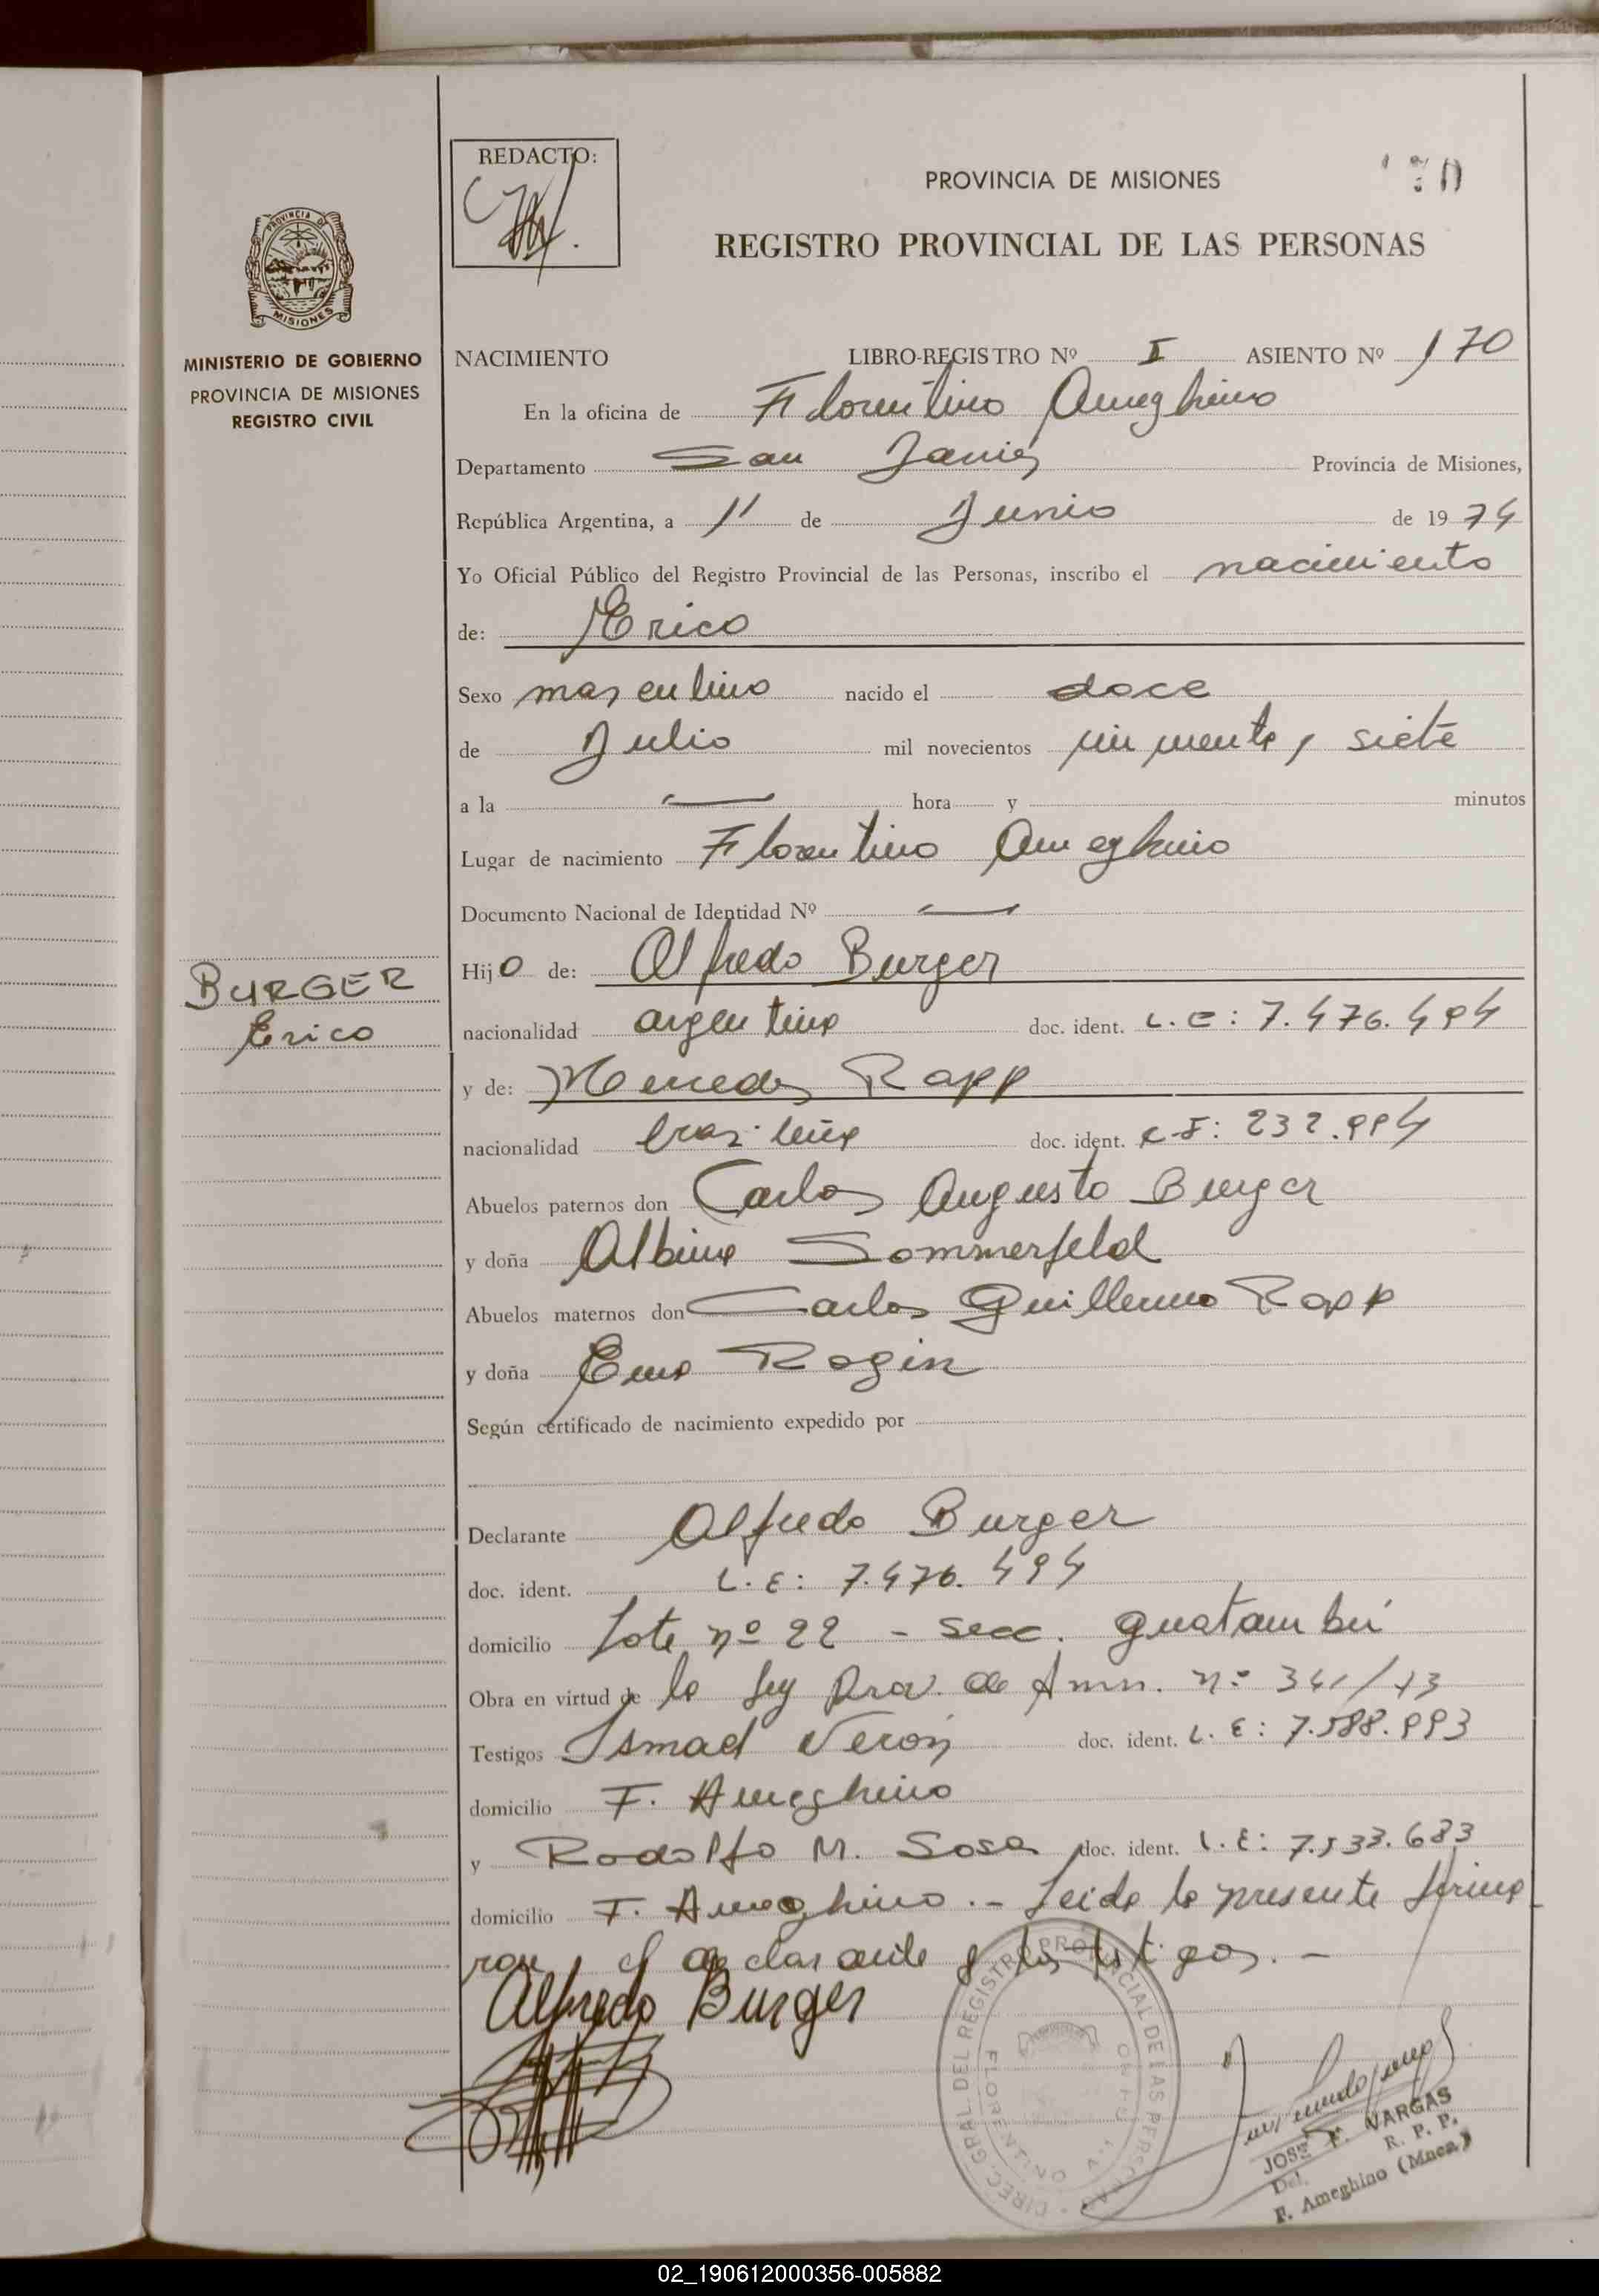 REDACTO:
PROVINCIA DE MISIONES
REGISTRO PROVINCIAL DE LAS PERSONAS
PROVINCIA DE
MISIONES
MINISTERIO DE GOBIERNO
PROVINCIA DE MISIONES
REGISTRO CIVIL
NACIMIENTO LIBRO-REGISTRO Nº I ASIENTO Nº 170
En la oficina de Florentino Ameghino
Departamento San Javier Provincia de Misiones,
República Argentina, a 1º de Junio de 19 74
Yo Oficial Público del Registro Provincial de las Personas, inscribo el nacimiento
de: Erico
Sexo masculino nacido el doce
de Julio mil novecientos cincuenta y siete
a la — hora y minutos
Lugar de nacimiento Florentino Ameghino
Documento Nacional de Identidad Nº —
Hijo de: Alfredo Burger
BURGER
Erico
nacionalidad argentina doc. ident. L.E: 7.476.494
y de: Mercedes Rapp
nacionalidad brasileña doc. ident. C.I: 232.994
Abuelos paternos don Carlos Augusto Burger
y doña Albina Sommerfeld
Abuelos maternos don Carlos Guillermo Rapp
y doña Ema Rogin
Según certificado de nacimiento expedido por
Declarante Alfredo Burger
doc. ident. L.E: 7.476.494
domicilio Lote nº 22 - secc. guatambú
Obra en virtud de la ley Prov. de Amn. nº 341/73
Testigos Ismael Verón doc. ident. L.E: 7.588.993
domicilio F. Ameghino
y Rodolfo M. Sosa doc. ident. L.E: 7.533.683
domicilio F. Ameghino.- Leida la presente firma
ron el declarante y los testigos.-
Alfredo Burger
DIREC. GRAL. DEL REGISTRO PROVINCIAL DE LAS PERSONAS
FLORENTINO
JOSE F. VARGAS
Del. R. P. P.
F. Ameghino (Mnes)
02_190612000356-005882